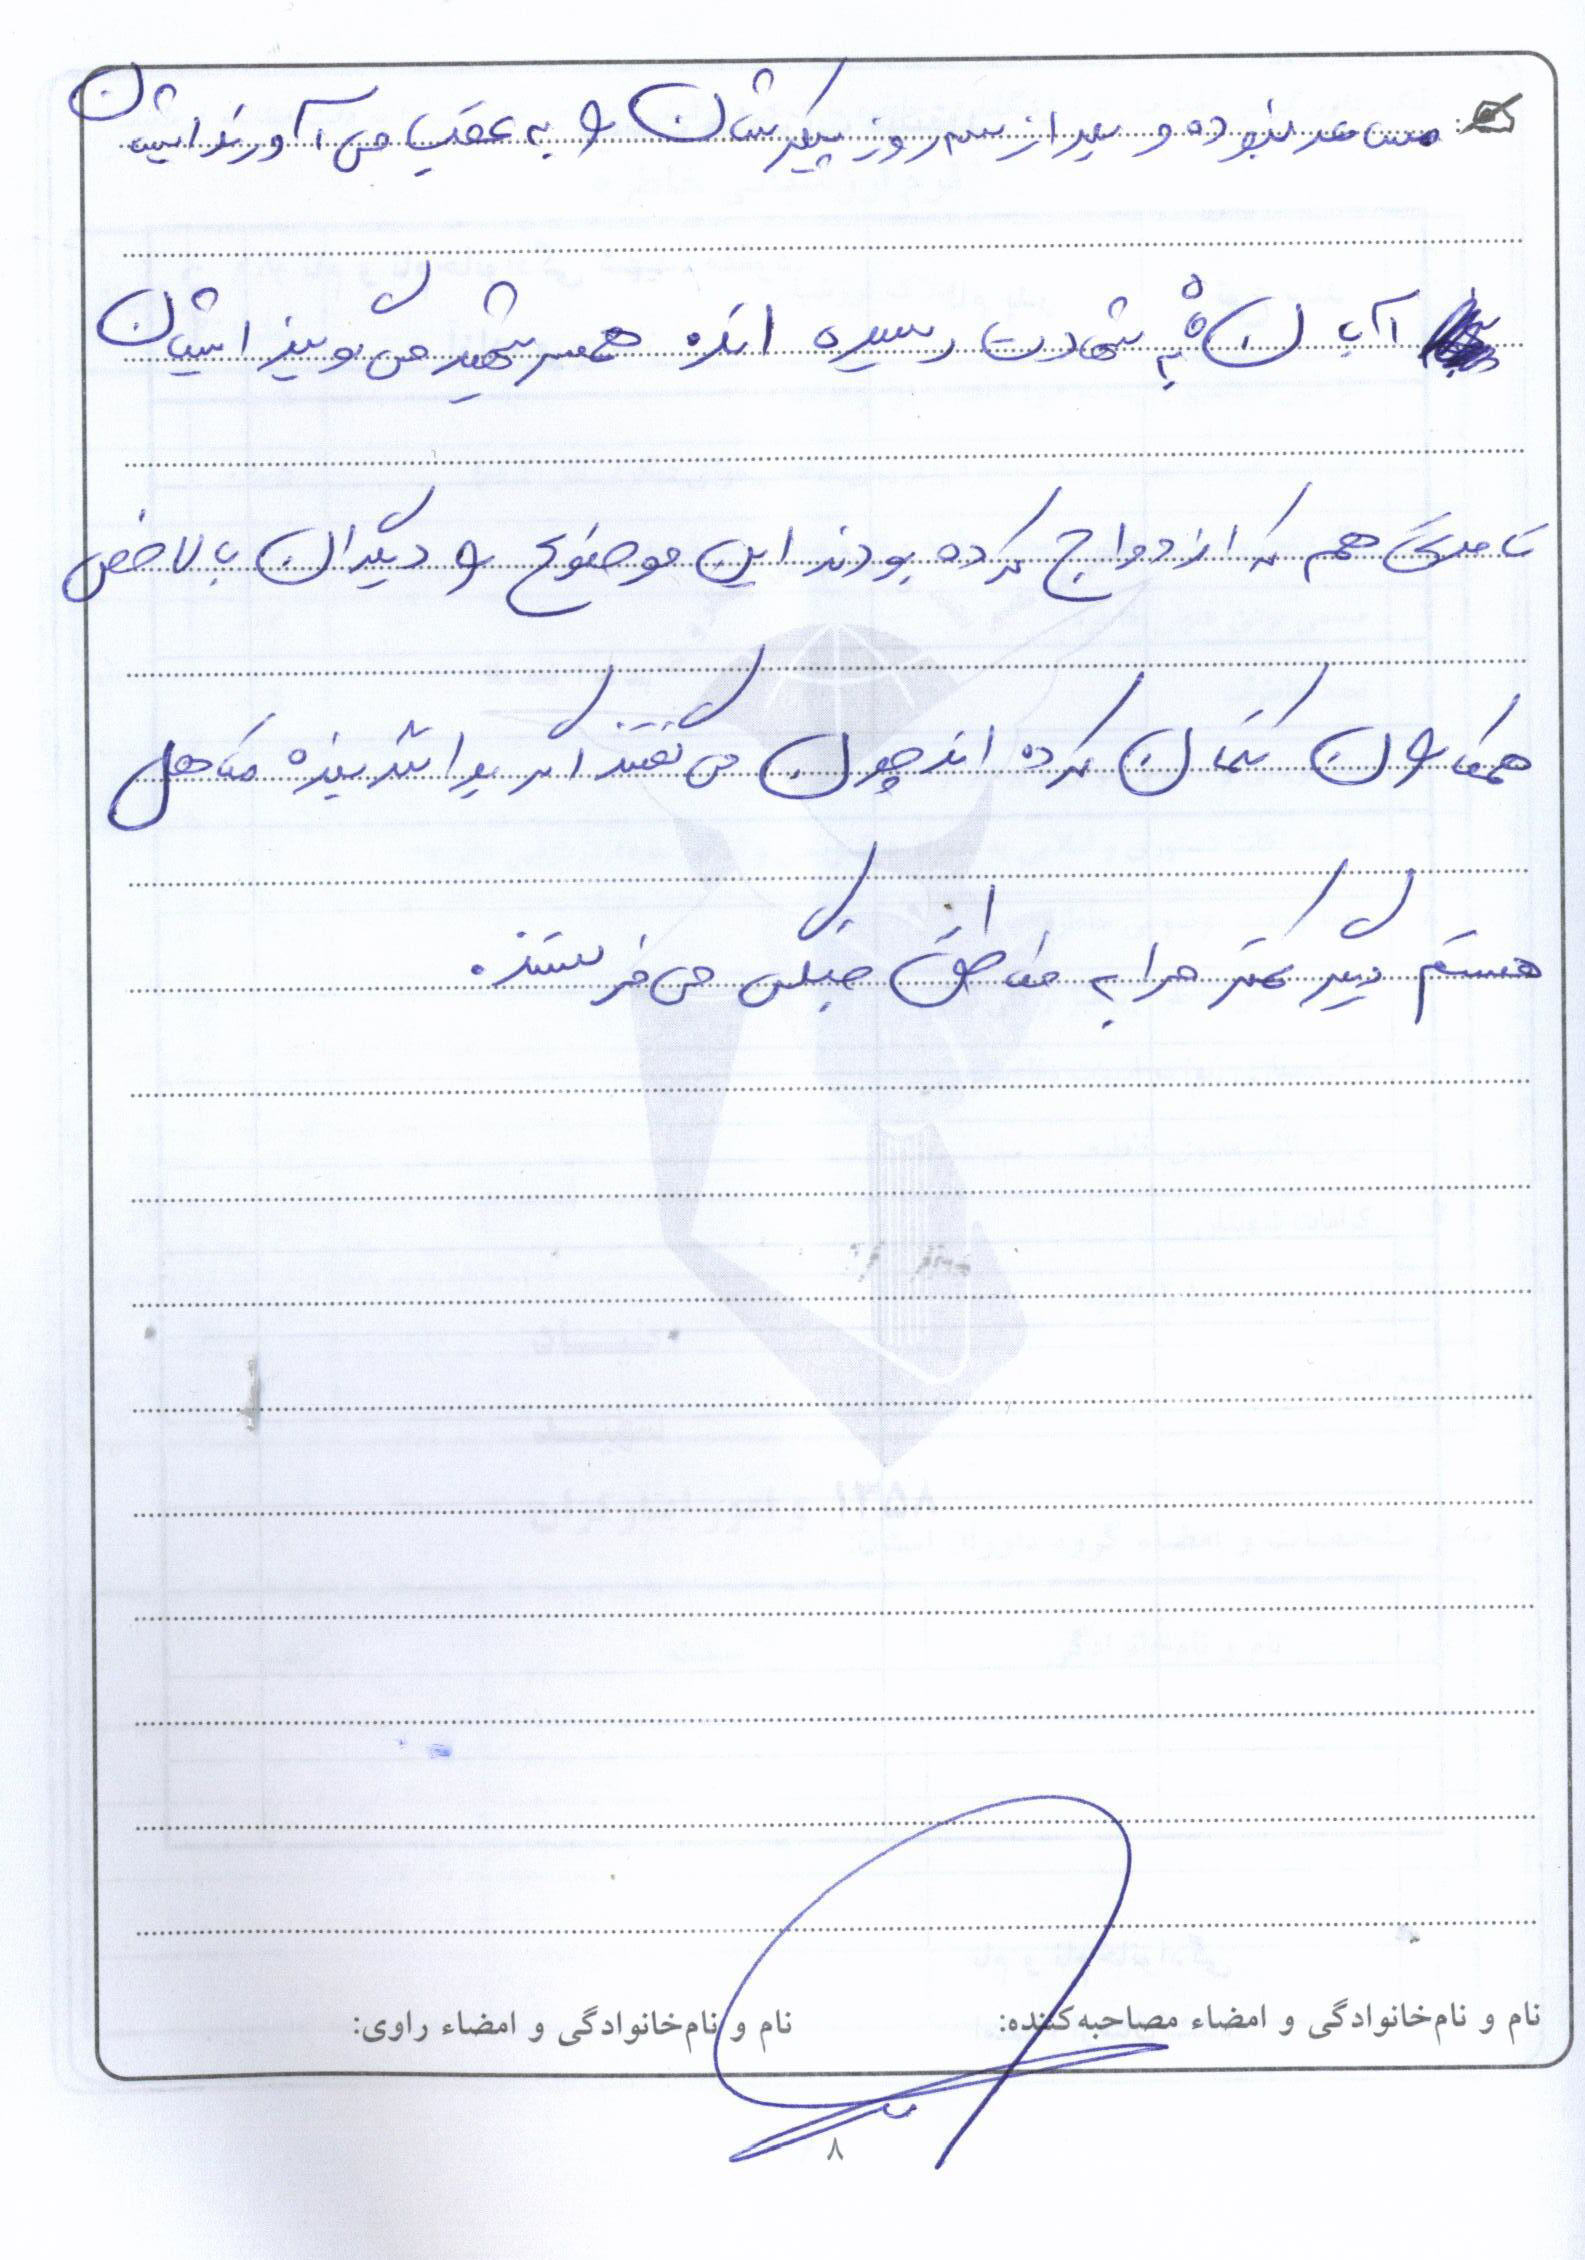 مساعد نبوده و بعد از سه روز پیکرشان را به عقب می آورند ایشان
آبان ۵۹ به شهادت رسیده اند. همسر شهید می گویند ایشان
تا مدتی هم که ازدواج کرده بودند این موضوع را از دیگران بالاخص
همکارانشان کتمان کرده اند چون می گفتند اگر بدانند بنده متاهل
هستم دیگر کمتر مرا به مناطق جنگی می فرستند.
نام و نام‌خانوادگی و امضاء مصاحبه‌کننده: نام و نام‌خانوادگی و امضاء راوی:
۸